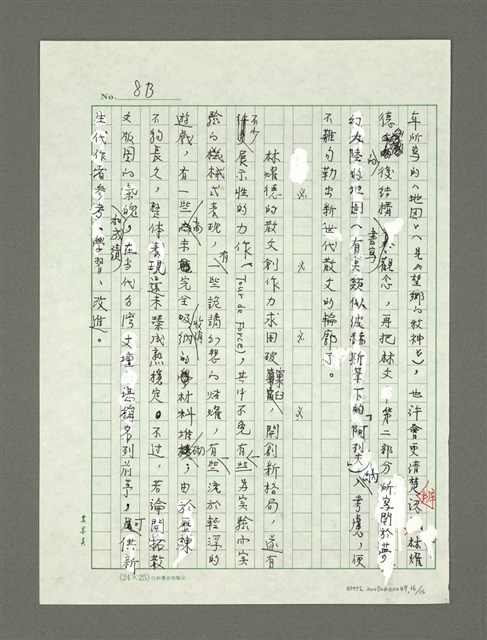 No. 8B
年所寫的〈地圖〉(見《望鄉的牧神》),也許會更清楚理解林燿
德的後結構書寫觀念,再把林文「第二部分所寫關於夢
幻大陸的地圖(有點類似波赫斯筆下的「阿列夫」)納入考慮,便
不難勾勒出新世代散文的輪廓了。
※ ※ ※ ※
林燿德的散文創作力求突破窠臼,開創新格局,遂有
不少展示性的力作(Tour de Force),其中不免有些為實驗而實
驗的機械式表現,有一些詭譎幻想的烘燿,有些流於輕浮的
遊戲,有一些尚未完全吸納收編的材料堆砌;由於歷練
不夠長久,整體表現還未臻成熟穩定。不過,若論開拓散
文版圖的氣魄和成績,在當代台灣文壇堪稱名列前茅,可供新
生代作者參考、學習、改進。
(24×25)
NMTL 20090420047, 16/16